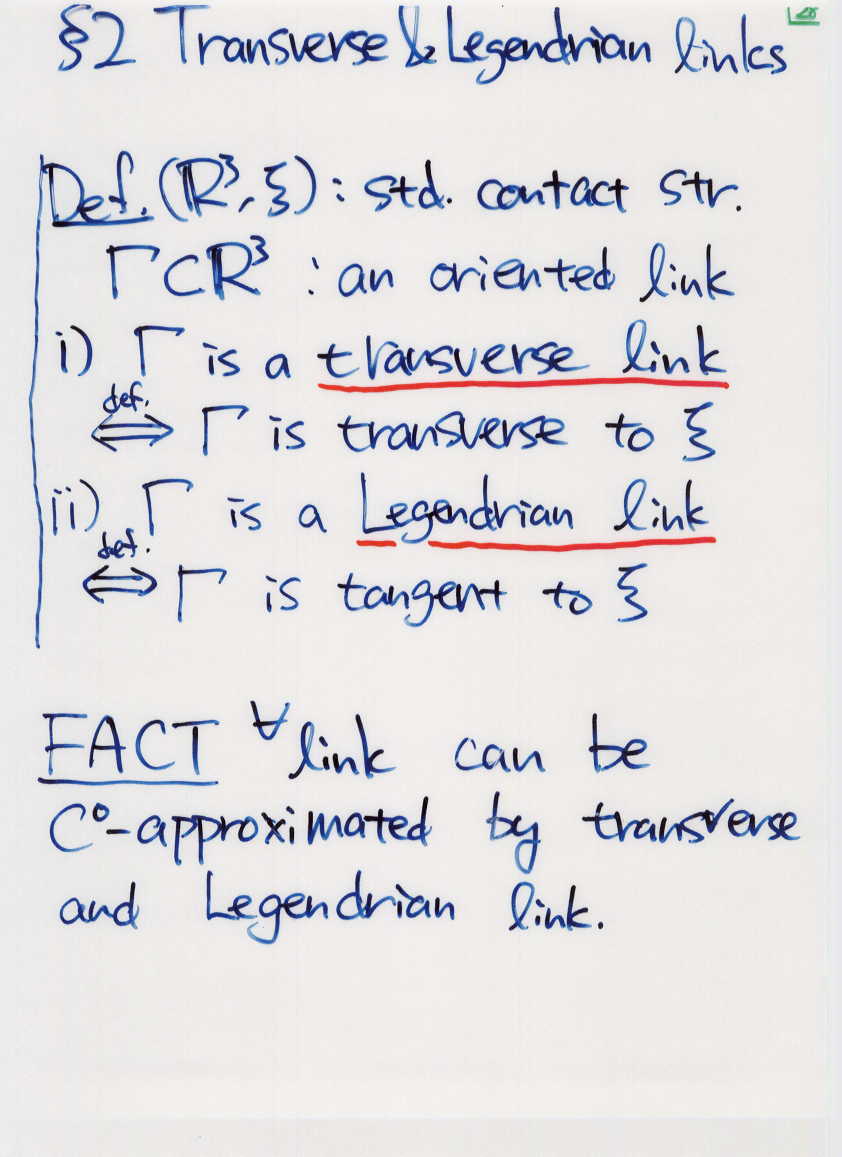 §2 Transverse & Legendrian links
Def. (ℝ³, ξ) : std. contact str.
Γ ⊂ ℝ³ : an oriented link
i) Γ is a transverse link
def. ⟺ Γ is transverse to ξ
ii) Γ is a Legendrian link
def. ⟺ Γ is tangent to ξ
FACT ∀link can be
C⁰-approximated by transverse
and Legendrian link.